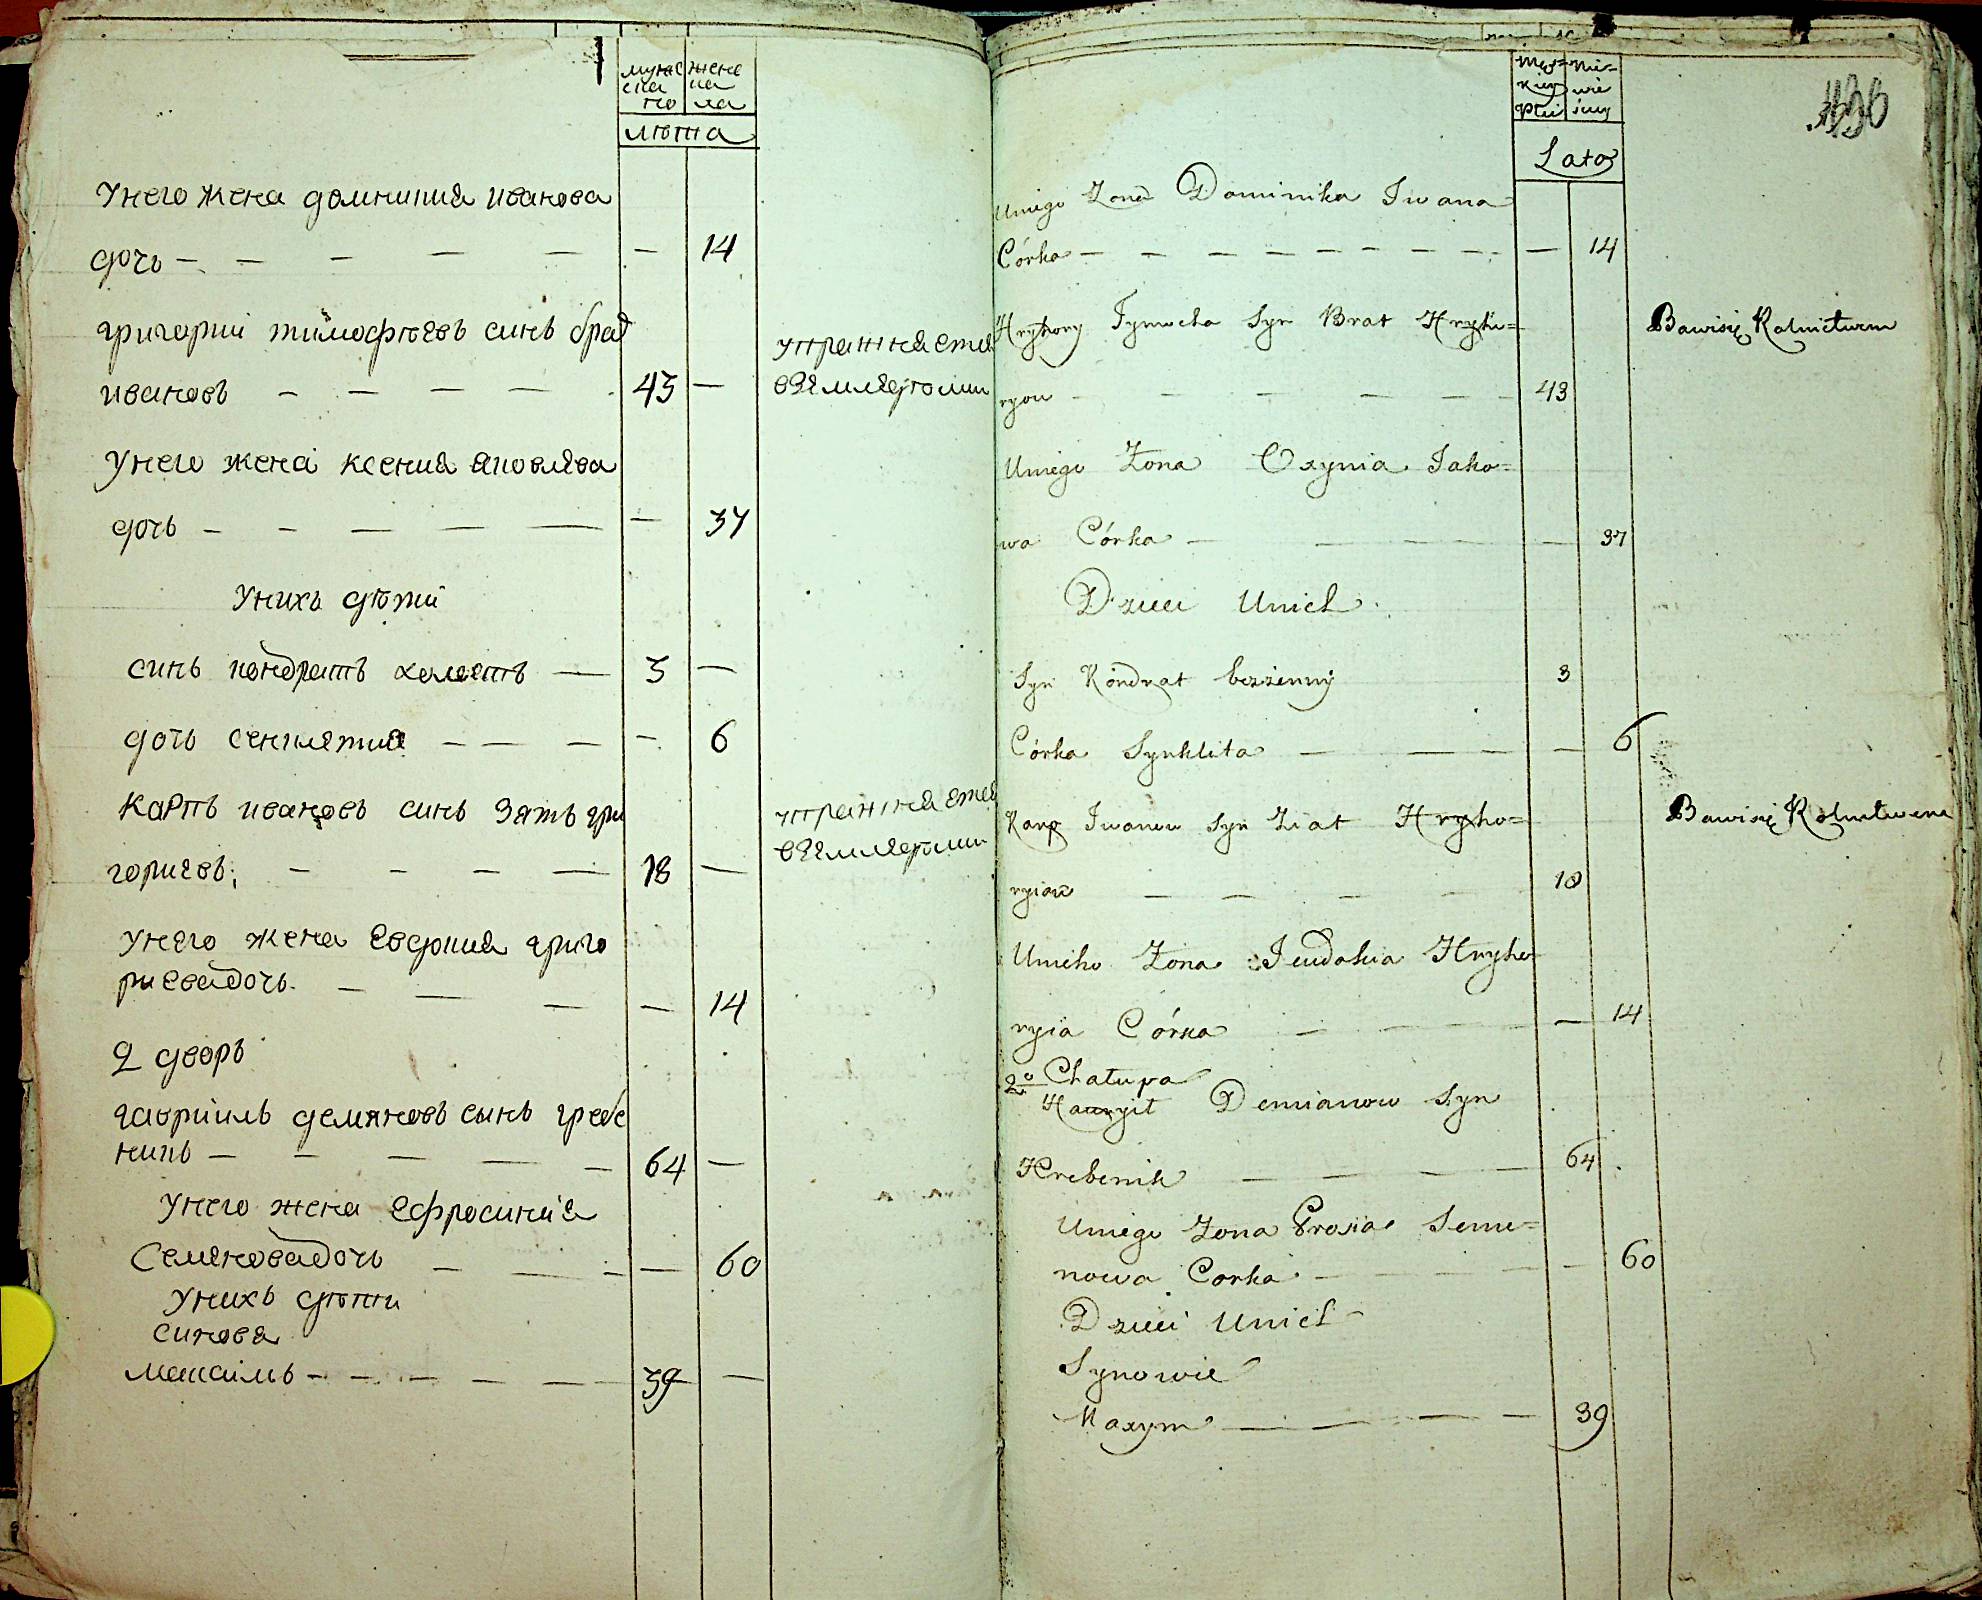 мужеска го
женска ла
лѣта
унего жена доминикия иванова
дочь — — — — — 14
григорий тимофѣевъ синъ брат
ивановъ — — — — 43 —
упражняется
вземледѣлии
унего жена ксения яковлева
дочь — — — — — — 37
унихъ дѣти
синъ кондратъ холостъ — 3 —
дочь секлятия — — — — 6
карпъ ивановъ синъ зять гри
гориевъ — — — — 18 —
упражняется
вземледѣлии
унего жена евдокия григо
риева дочь — — — — 14
2 дворъ
гавриилъ демяновъ сынъ гребе
никъ — — — — — 64 —
унего жена ефросиния
семенова дочь — — — — 60
унихъ дѣти
синовя
максимъ — — — — — 39 —
Męzkiey płci
Niewieściey
Lata
Uniego Żona Dominika Iwana
Córka — — — — — — — — 14
Hryhory Tymocha Syn Brat Hryho=
ryow — — — — — 43
Bawisię Rolnictwem
Uniego Żona Oxynia Jako=
wa Córka — — — — 37
Dzieci Unich
Syn Kondrat bezżenny 3
Córka Synklita — — — — 6
Karp Iwanow Syn Ziat Hryho=
ryiow — — — — 18
Bawisię Rolnictwem
Unieho Żona Jewdokia Hryho
ryia Córka — — — — 14
2º Chałupa
Hawryił Demianow Syn
Hrebenik — — — — 64
Uniego Żona Prosia Seme=
nowa Corka — — — — 60
Dzieci Unich
Synowie
Maxym — — — — 39